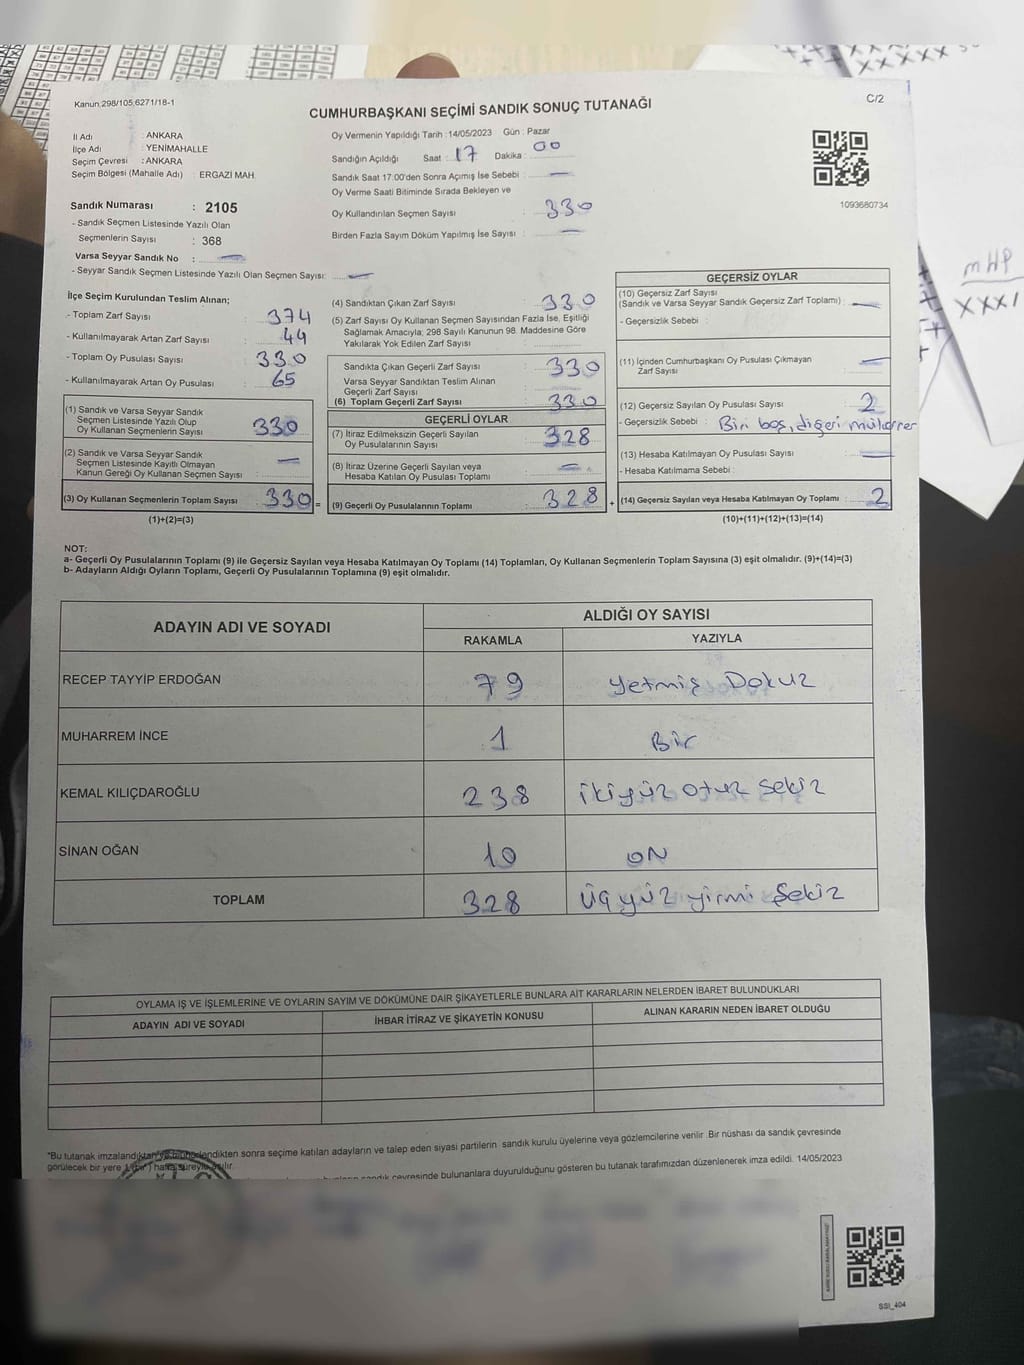 Kanun,298/105,6271/18-1
CUMHURBAŞKANI SEÇİMİ SANDIK SONUÇ TUTANAĞI
C/2
İl Adı : ANKARA
İlçe Adı : YENİMAHALLE
Seçim Çevresi : ANKARA
Seçim Bölgesi (Mahalle Adı) : ERGAZİ MAH.
Sandık Numarası : 2105
- Sandık Seçmen Listesinde Yazılı Olan
Seçmenlerin Sayısı : 368
Varsa Seyyar Sandık No : —
- Seyyar Sandık Seçmen Listesinde Yazılı Olan Seçmen Sayısı: —
Oy Vermenin Yapıldığı Tarih : 14/05/2023 Gün : Pazar
Sandığın Açıldığı Saat : 17 Dakika : 00
Sandık Saat 17:00'den Sonra Açımış İse Sebebi : —
Oy Verme Saati Bitiminde Sırada Bekleyen ve
Oy Kullandırılan Seçmen Sayısı : 330
Birden Fazla Sayım Döküm Yapılmış İse Sayısı : —
1093680734
mHP
XXXI
İlçe Seçim Kurulundan Teslim Alınan;
- Toplam Zarf Sayısı : 374
- Kullanılmayarak Artan Zarf Sayısı : 44
- Toplam Oy Pusulası Sayısı : 330
- Kullanılmayarak Artan Oy Pusulası : 65
(1) Sandık ve Varsa Seyyar Sandık
Seçmen Listesinde Yazılı Olup
Oy Kullanan Seçmenlerin Sayısı : 330
(2) Sandık ve Varsa Seyyar Sandık
Seçmen Listesinde Kayıtlı Olmayan
Kanun Gereği Oy Kullanan Seçmen Sayısı : —
(3) Oy Kullanan Seçmenlerin Toplam Sayısı : 330 =
(1)+(2)=(3)
(4) Sandıktan Çıkan Zarf Sayısı : 330
(5) Zarf Sayısı Oy Kullanan Seçmen Sayısından Fazla İse, Eşitliği
Sağlamak Amacıyla; 298 Sayılı Kanunun 98. Maddesine Göre
Yakılarak Yok Edilen Zarf Sayısı :
Sandıkta Çıkan Geçerli Zarf Sayısı : 330
Varsa Seyyar Sandıktan Teslim Alınan
Geçerli Zarf Sayısı :
(6) Toplam Geçerli Zarf Sayısı : 330
GEÇERLİ OYLAR
(7) İtiraz Edilmeksizin Geçerli Sayılan
Oy Pusulalarının Sayısı : 328
(8) İtiraz Üzerine Geçerli Sayılan veya
Hesaba Katılan Oy Pusulası Toplamı : —
(9) Geçerli Oy Pusulalarının Toplamı : 328 +
GEÇERSİZ OYLAR
(10) Geçersiz Zarf Sayısı
(Sandık ve Varsa Seyyar Sandık Geçersiz Zarf Toplamı) : —
- Geçersizlik Sebebi :
(11) İçinden Cumhurbaşkanı Oy Pusulası Çıkmayan
Zarf Sayısı : —
(12) Geçersiz Sayılan Oy Pusulası Sayısı : 2
- Geçersizlik Sebebi : Biri boş, diğeri mükerrer
(13) Hesaba Katılmayan Oy Pusulası Sayısı : —
- Hesaba Katılmama Sebebi :
(14) Geçersiz Sayılan veya Hesaba Katılmayan Oy Toplamı : 2
(10)+(11)+(12)+(13)=(14)
NOT:
a- Geçerli Oy Pusulalarının Toplamı (9) ile Geçersiz Sayılan veya Hesaba Katılmayan Oy Toplamı (14) Toplamları, Oy Kullanan Seçmenlerin Toplam Sayısına (3) eşit olmalıdır. (9)+(14)=(3)
b- Adayların Aldığı Oyların Toplamı, Geçerli Oy Pusulalarının Toplamına (9) eşit olmalıdır.
ADAYIN ADI VE SOYADI
ALDIĞI OY SAYISI
RAKAMLA YAZIYLA
RECEP TAYYİP ERDOĞAN 79 Yetmiş Dokuz
MUHARREM İNCE 1 Bir
KEMAL KILIÇDAROĞLU 238 ikiyüz otuz sekiz
SİNAN OĞAN 10 ON
TOPLAM 328 Üçyüz yirmi Şekiz
OYLAMA İŞ VE İŞLEMLERİNE VE OYLARIN SAYIM VE DÖKÜMÜNE DAİR ŞİKAYETLERLE BUNLARA AİT KARARLARIN NELERDEN İBARET BULUNDUKLARI
ADAYIN ADI VE SOYADI İHBAR İTİRAZ VE ŞİKAYETİN KONUSU ALINAN KARARIN NEDEN İBARET OLDUĞU
*Bu tutanak imzalandıktan ve mühürlendikten sonra seçime katılan adayların ve talep eden siyasi partilerin sandık kurulu üyelerine veya gözlemcilerine verilir .Bir nüshası da sandık çevresinde
görülecek bir yere hafta süreyle asılır.
sandık çevresinde bulunanlara duyurulduğunu gösteren bu tutanak tarafımızdan düzenlenerek imza edildi. 14/05/2023
SSI_404